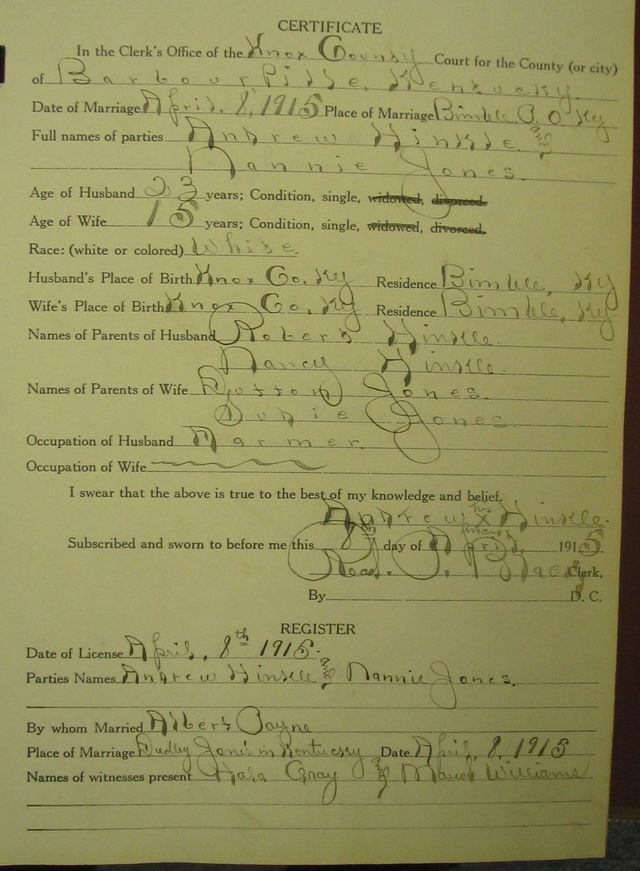 CERTIFICATE
In the Clerk's Office of the Knox County Court for the County (or city)
of Barbourville, Kentucky.
Date of Marriage April, 8, 1915 Place of Marriage Bimble P. O. Ky
Full names of parties Andrew Hinkle. &
Nannie Jones.
Age of Husband 23 years; Condition, single, widowed, divorced.
Age of Wife 15 years; Condition, single, widowed, divorced.
Race: (white or colored) White.
Husband's Place of Birth Knox Co. Ky Residence Bimble, Ky
Wife's Place of Birth Knox Co. Ky Residence Bimble, Ky
Names of Parents of Husband Robert Hinkle.
Nancy Hinkle.
Names of Parents of Wife Jones.
Jones.
Occupation of Husband Farmer
Occupation of Wife
I swear that the above is true to the best of my knowledge and belief.
his
Andrew X Hinkle.
mark
Subscribed and sworn to before me this 8th day of April, 1915
Clerk,
By D. C.
REGISTER
Date of License April, 8th 1915.
Parties Names Andrew Hinkle & Nannie Jones.
By whom Married Albert Payne
Place of Marriage Dudley in Kentucky Date April, 8, 1915
Names of witnesses present Gray & Williams